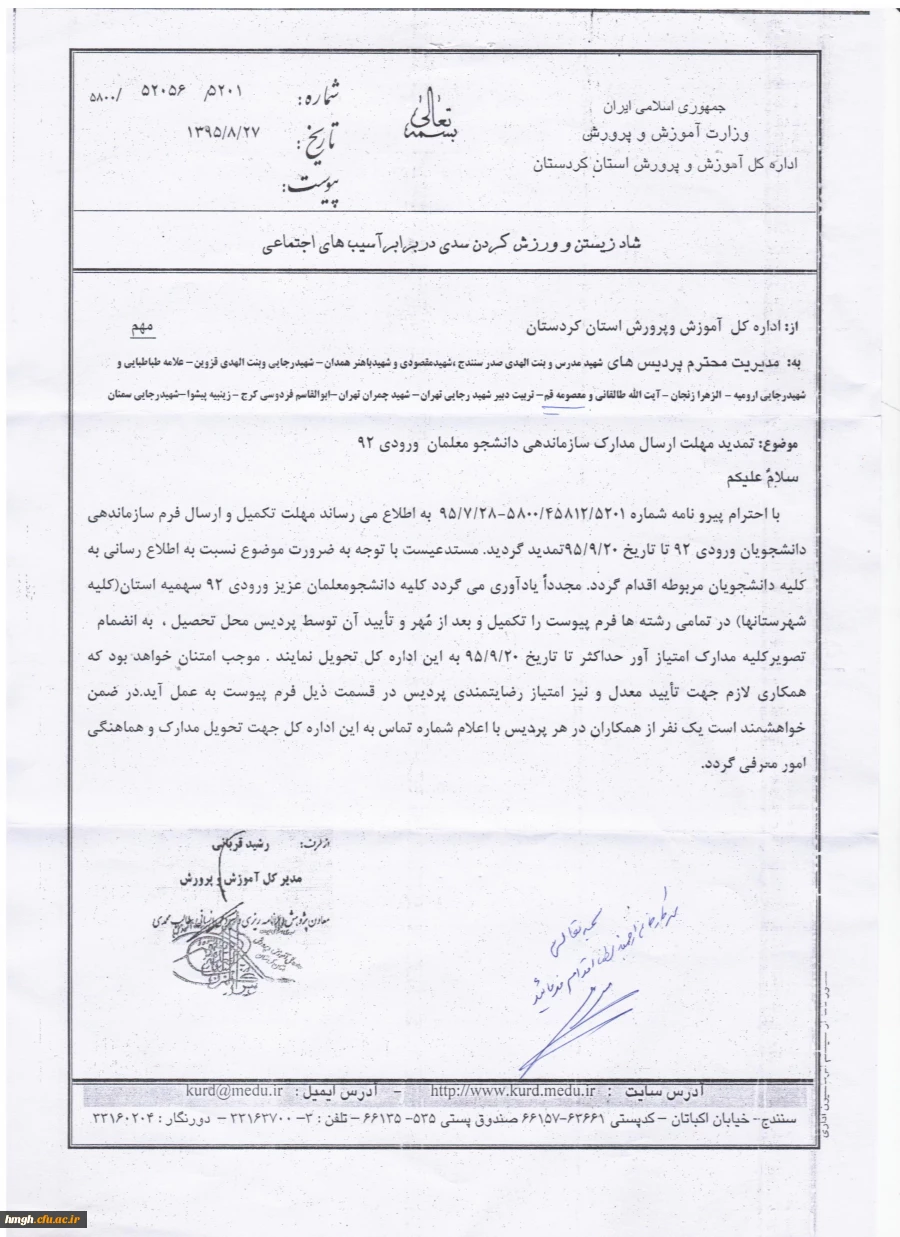 جمهوری اسلامی ایران
وزارت آموزش و پرورش
اداره کل آموزش و پرورش استان کردستان
بسمه تعالی
شماره: ۵۸۰۰/ ۵۲۰۵۶ /۵۲۰۱
تاریخ: ۱۳۹۵/۸/۲۷
پیوست:
شاد زیستن و ورزش کردن سدی در برابر آسیب های اجتماعی
از: اداره کل آموزش وپرورش استان کردستان
مهم
به: مدیریت محترم پردیس های شهید مدرس و بنت الهدی صدر سنندج ،شهیدمقصودی و شهیدباهنر همدان – شهیدرجایی وبنت الهدی قزوین – علامه طباطبایی و
شهیدرجایی ارومیه – الزهرا زنجان – آیت الله طالقانی و معصومه قم – تربیت دبیر شهید رجایی تهران – شهید چمران تهران –ابوالقاسم فردوسی کرج – زینبیه پیشوا–شهیدرجایی سمنان
موضوع: تمدید مهلت ارسال مدارک سازماندهی دانشجو معلمان ورودی ۹۲
سلامٌ علیکم
با احترام پیرو نامه شماره ۵۸۰۰/۴۵۸۱۲/۵۲۰۱–۹۵/۷/۲۸ به اطلاع می رساند مهلت تکمیل و ارسال فرم سازماندهی
دانشجویان ورودی ۹۲ تا تاریخ ۹۵/۹/۲۰تمدید گردید. مستدعیست با توجه به ضرورت موضوع نسبت به اطلاع رسانی به
کلیه دانشجویان مربوطه اقدام گردد. مجدداً یادآوری می گردد کلیه دانشجومعلمان عزیز ورودی ۹۲ سهمیه استان(کلیه
شهرستانها) در تمامی رشته ها فرم پیوست را تکمیل و بعد از مُهر و تأیید آن توسط پردیس محل تحصیل ، به انضمام
تصویرکلیه مدارک امتیاز آور حداکثر تا تاریخ ۹۵/۹/۲۰ به این اداره کل تحویل نمایند . موجب امتنان خواهد بود که
همکاری لازم جهت تأیید معدل و نیز امتیاز رضایتمندی پردیس در قسمت ذیل فرم پیوست به عمل آید.در ضمن
خواهشمند است یک نفر از همکاران در هر پردیس با اعلام شماره تماس به این اداره کل جهت تحویل مدارک و هماهنگی
امور معرفی گردد.
از طرف: رشید قربانی
مدیر کل آموزش و پرورش
معاون پژوهش، برنامه ریزی و
بسمه تعالی
اقدام فرمائید
آدرس سایت : http://www.kurd.medu.ir – آدرس ایمیل : kurd@medu.ir
سنندج– خیابان اکباتان – کدپستی ۶۳۶۶۱–۶۶۱۵۷ صندوق پستی ۵۳۵– ۶۶۱۳۵ – تلفن : ۳– ۳۳۱۶۳۷۰۰ – دورنگار : ۳۳۱۶۰۲۰۴
hmgh.cfu.ac.ir